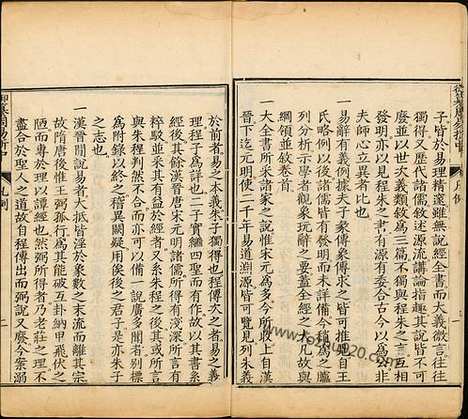 御纂周易折中 凡例 一
子皆於易理精邃雖無說經全書而大義微言往往
獨得又歷代諸儒敘述源流講論指趣其說皆不可
廢又以世次義類敘為三篇不獨與程朱之言互相
發明又以見程朱之書有源有委合古今以為公非
夫師心立異者比也
一易辭有義例據夫子彖傳象傳求之皆可推見王
氏略例以後諸儒皆有發明而未詳備今攝為之臚
列分析示學者觀象玩辭之要蓋全經之大凡故與
綱領並敘卷首
一大全書所采諸家之說惟宋元為多今所收上自
晉下迄元明使二千年易道淵源皆可覽見列朱義
於前者易之本義朱子獨得也程傳次之者易之義
理程子為詳也二子實繼四聖而有作故以其書系
經後其餘漢晉唐宋元明諸儒所得有淺深所言有
粹駁並采其有益於經者又系朱程之後其或所言
與朱程判然不合而亦可以備一說廣多聞者別標
為附錄以終之稽異闕疑用俟後之君子是亦朱子
之志也
一漢晉間說易者大抵皆淫於象數之末流而離其宗
故隋唐後惟王弼孤行為其能破互卦納甲飛伏之
陋而專於理以譚經也然弼所得者乃老莊之理不
盡合於聖人之道故自程傳出而弼說又廢今案溺
御纂周易折中 凡例 二